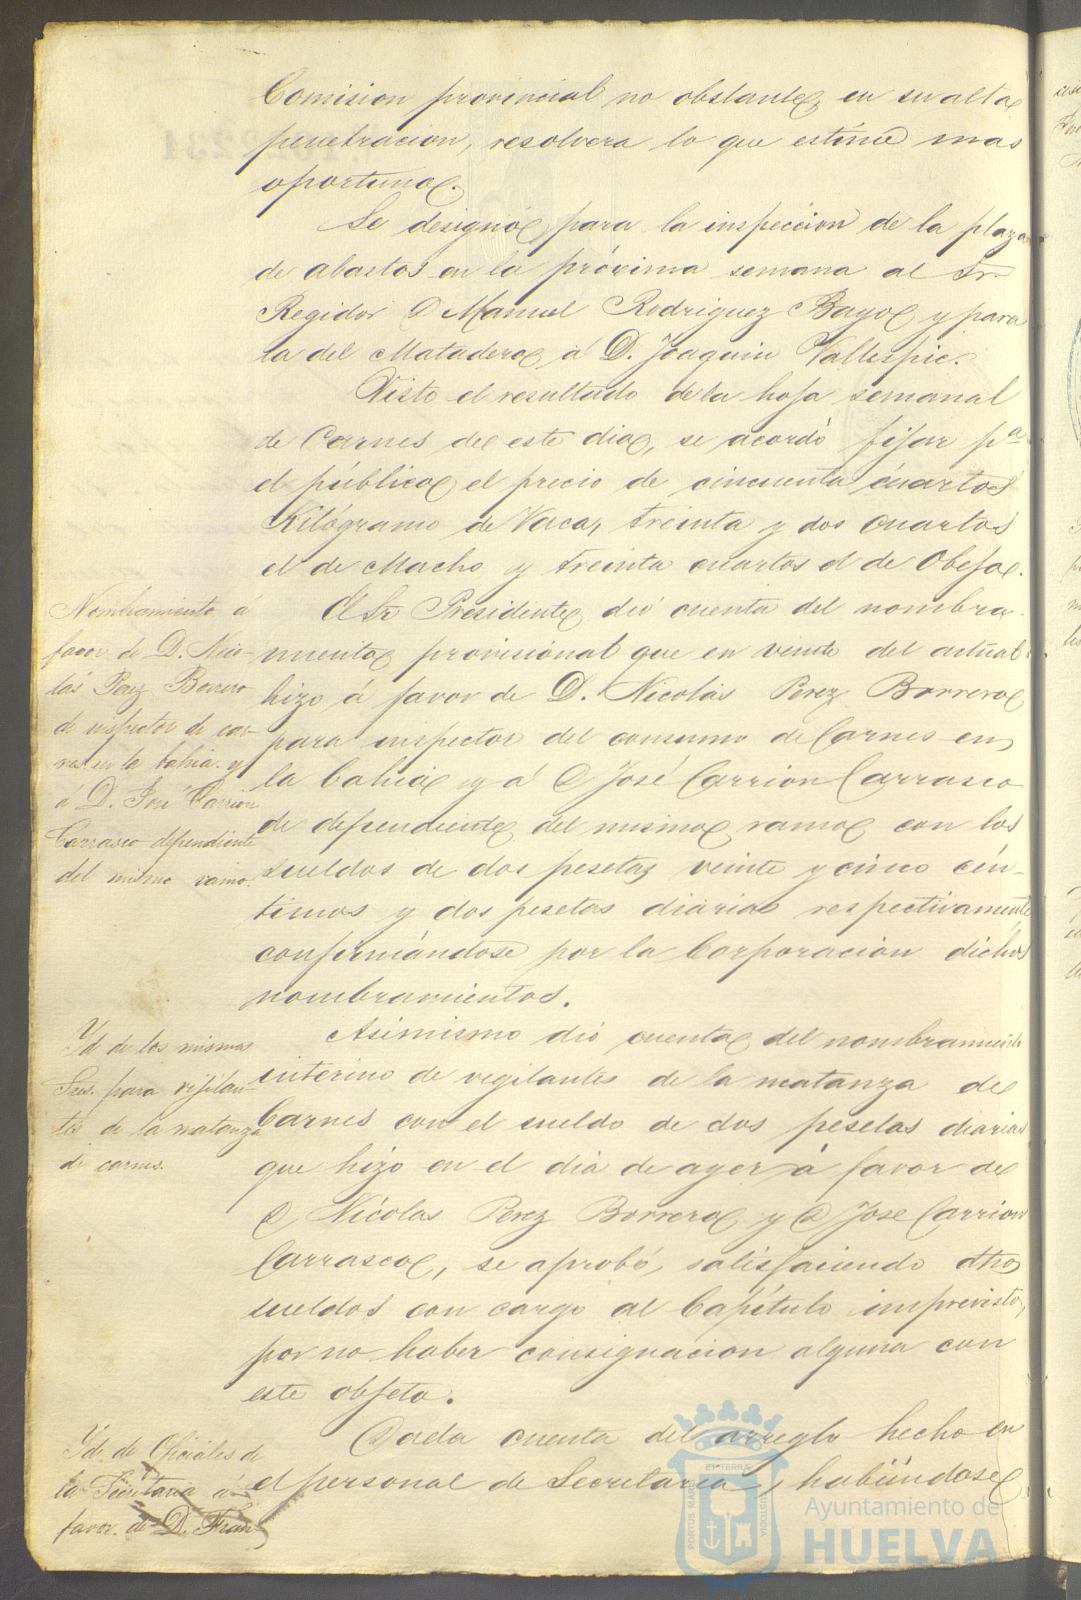 Comision provincial no obstante, en su alta
penetracion, resolvera lo que estime mas
oportuno.
Se designó para la inspeccion de la plaza
de abastos en la próxima semana al Sr.
Regidor D Manuel Rodriguez Bayo y para
la del Matadero á D. Joaquin Vallespic.
Visto el resultado de la hoja semanal
de Carnes de este dia, se acordó fijar pª
el público el precio de cincuenta cuartos
Kilógramo de Vaca, treinta y dos cuartos
el de Macho y treinta cuartos el de Obeja.
El Sr Presidente dió cuenta del nombra-
miento provisional que en veinte del actual
hizo á favor de D. Nicolás Perez Borrero
para inspector del consumo de Carnes en
la bahia y á D José Carrion Carrasco
de dependiente del mismo ramo con los
sueldos de dos pesetas veinte y cinco cén-
timos y dos pesetas diarias respectivamente
confirmándose por la Corporacion dichos
nombramientos.
Asimismo dió cuenta del nombramiento
interino de vegilantes de la matanza de
Carnes con el sueldo de dos pesetas diarias
que hizo en el dia de ayer á favor de
D Nicolas Perez Borrero y D Jose Carrion
Carrasco, se aprobó, satisfaciendo dhos
sueldos con cargo al Capítulo imprevistos,
por no haber consignacion alguna con
este objeto.
Dada cuenta del arreglo hecho en
el personal de Secretaria, habiéndose
Nombramiento á
favor de D. Nico-
lás Perez Borrero
de inspector de car-
nes en la bahia y
á D. José Carrion
Carrasco dependiente
del mismo ramo.
Yd de los mismos
Sres. para vijilan-
tes de la matanza
de carnes.
Yd. de Oficiales de
la á
favor de D. Fran
PORTUS MARIS ET TERRAE CUSTODIA
Ayuntamiento de
HUELVA